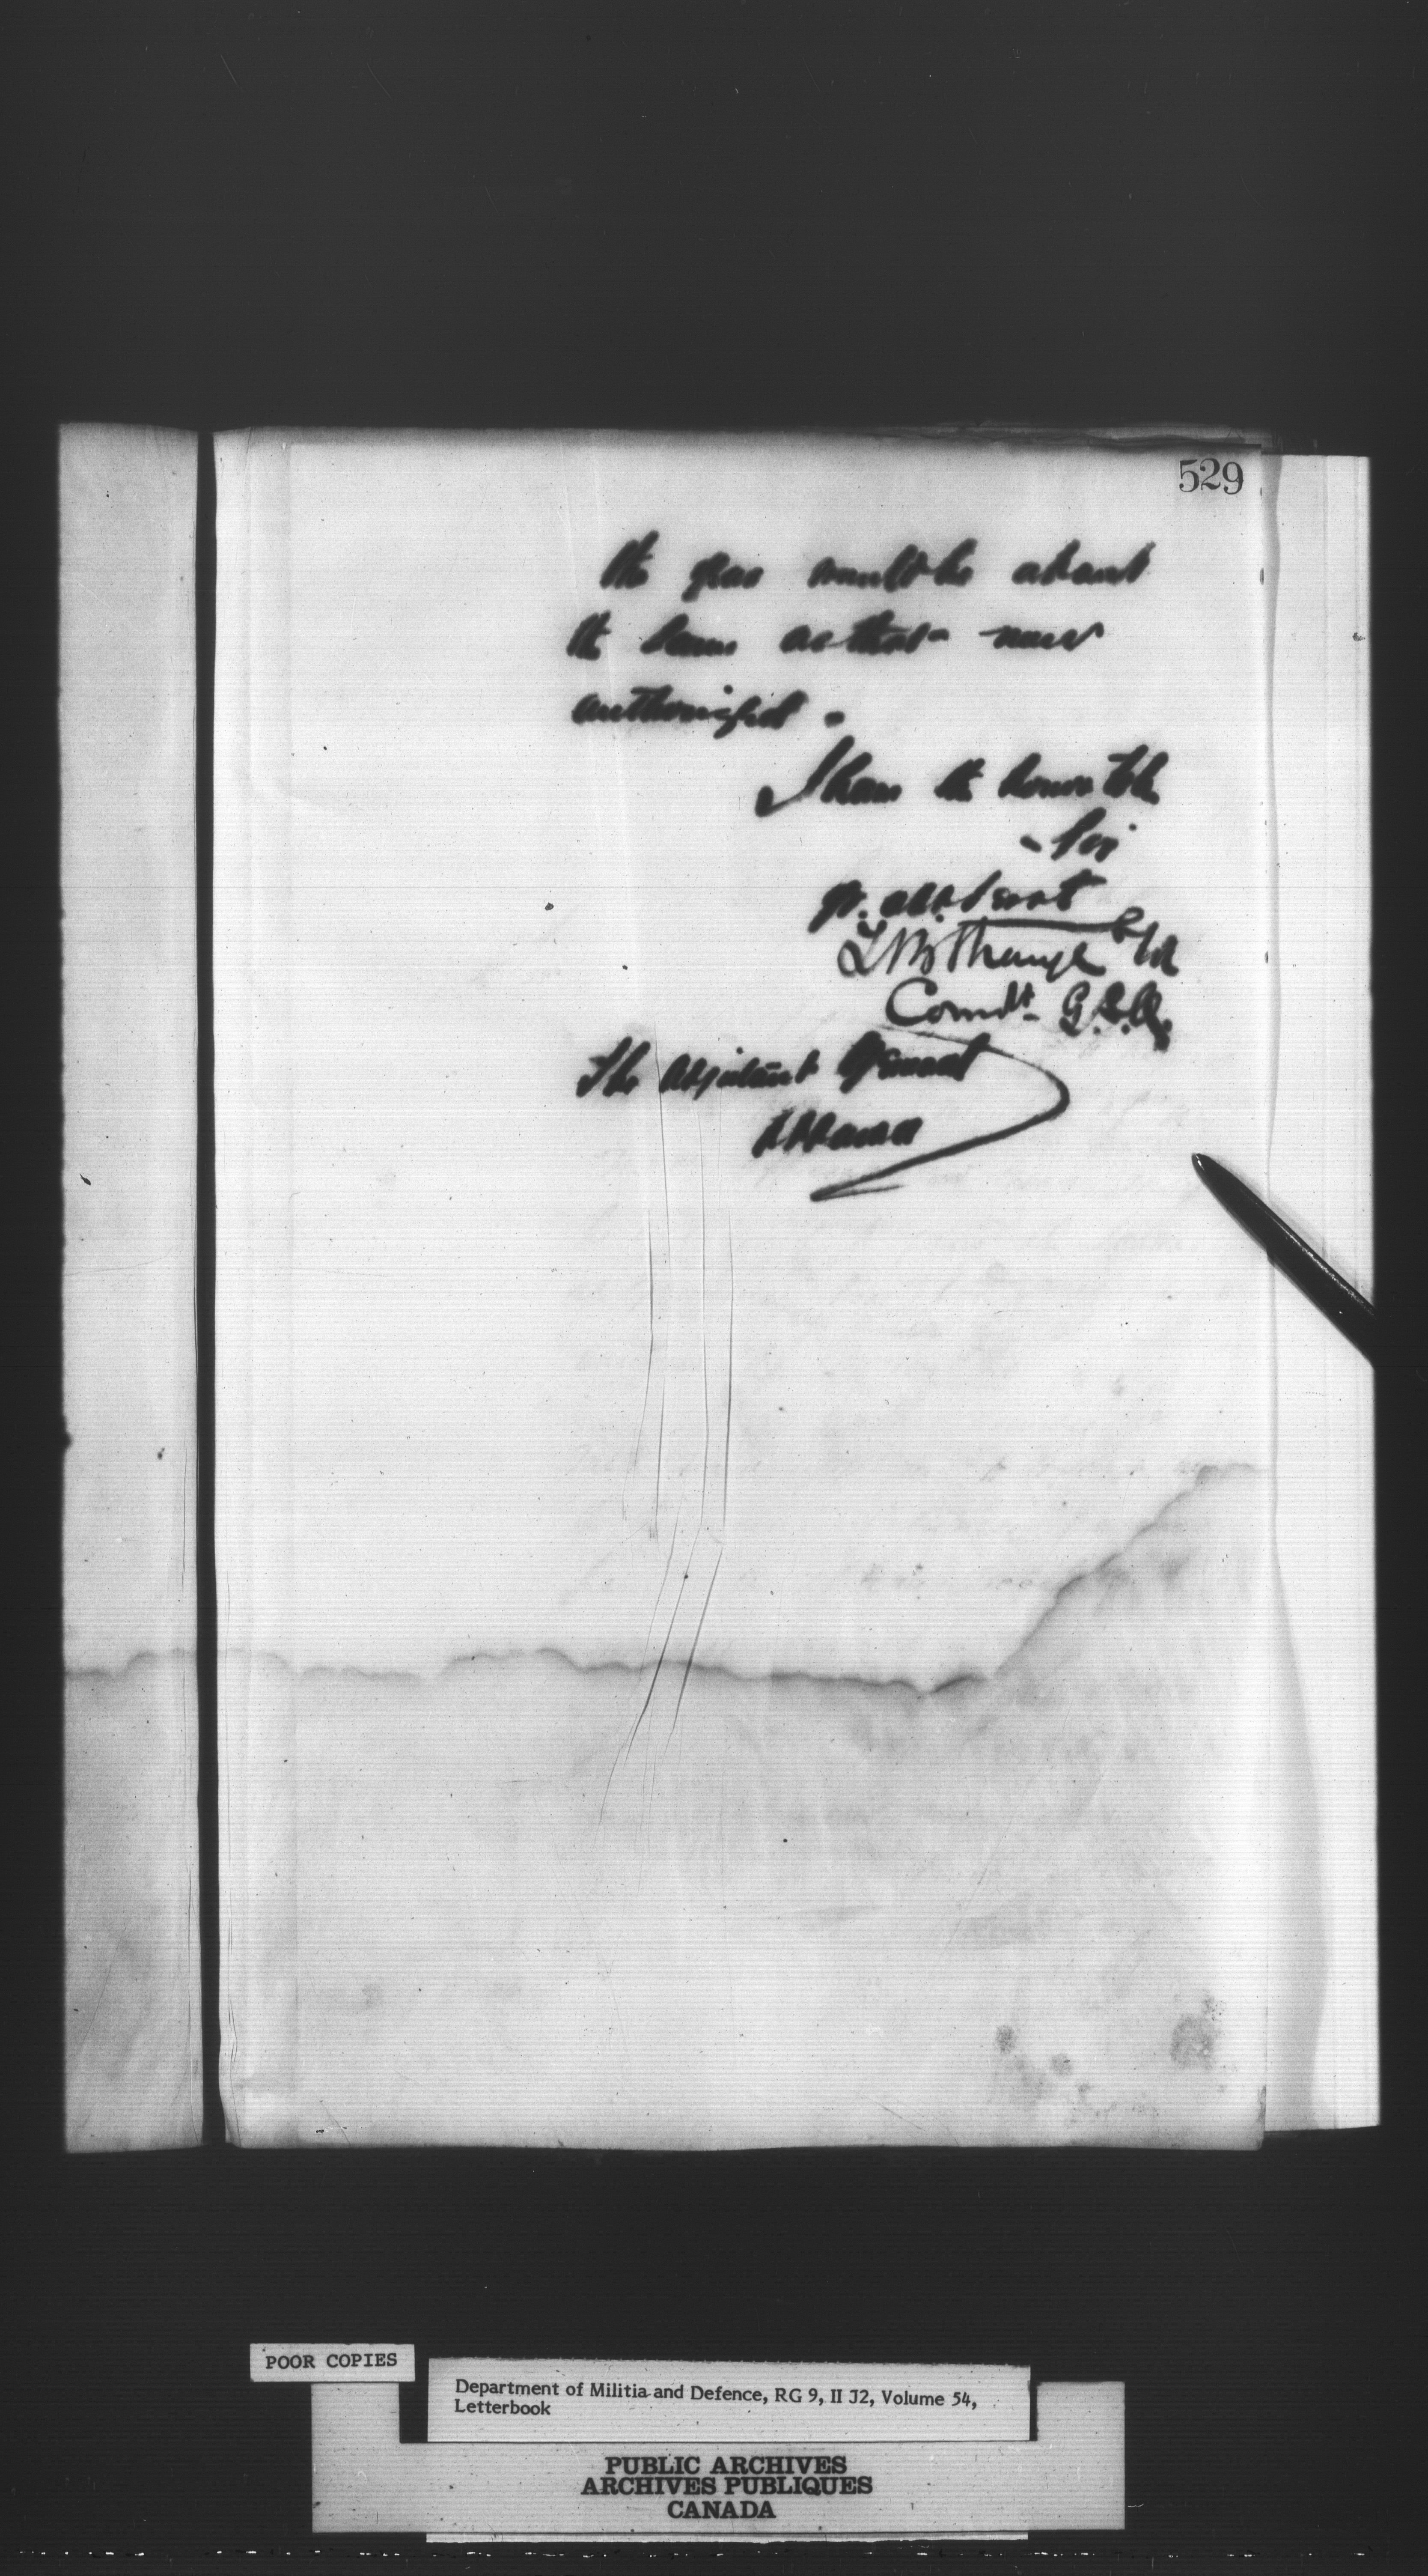 529
the year would be about
the same as that now
authorized.
I have the honor to be
- Sir
yr. obdt servt
T B Strange Lt Col
Comdt. G.S.Q.
The Adjutant General
Ottawa
POOR COPIES
Department of Militia and Defence, RG 9, II J2, Volume 54,
Letterbook
PUBLIC ARCHIVES
ARCHIVES PUBLIQUES
CANADA